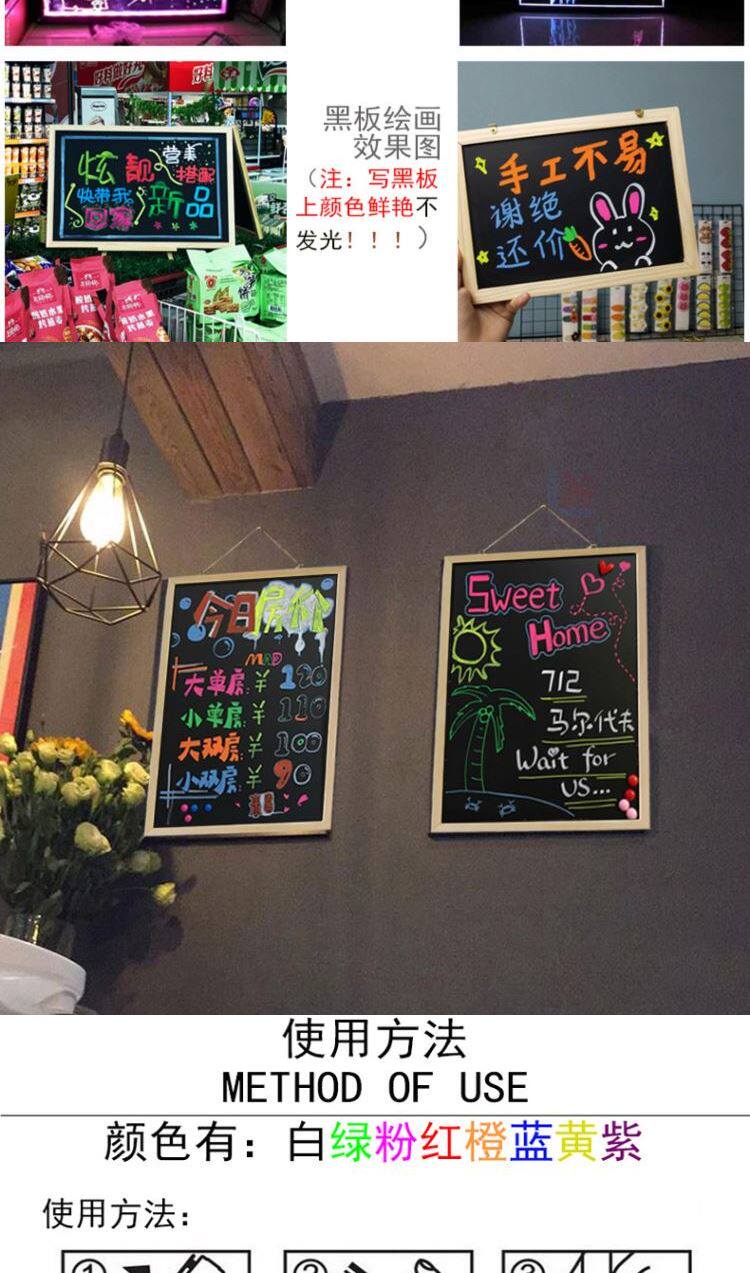 好料做好光
炫靓
营养
搭配
快带我
回家
新品
黑板绘画
效果图
（注：写黑板
上颜色鲜艳不
发光！！！）
手工不易
谢绝
还价
今日房价
大单房：￥120
小单房：￥110
大双房：￥100
小双房：￥90
Sweet
Home
712
马尔代夫
Wait for
US...
使用方法
METHOD OF USE
颜色有：白绿粉红橙蓝黄紫
使用方法：
① ② ③